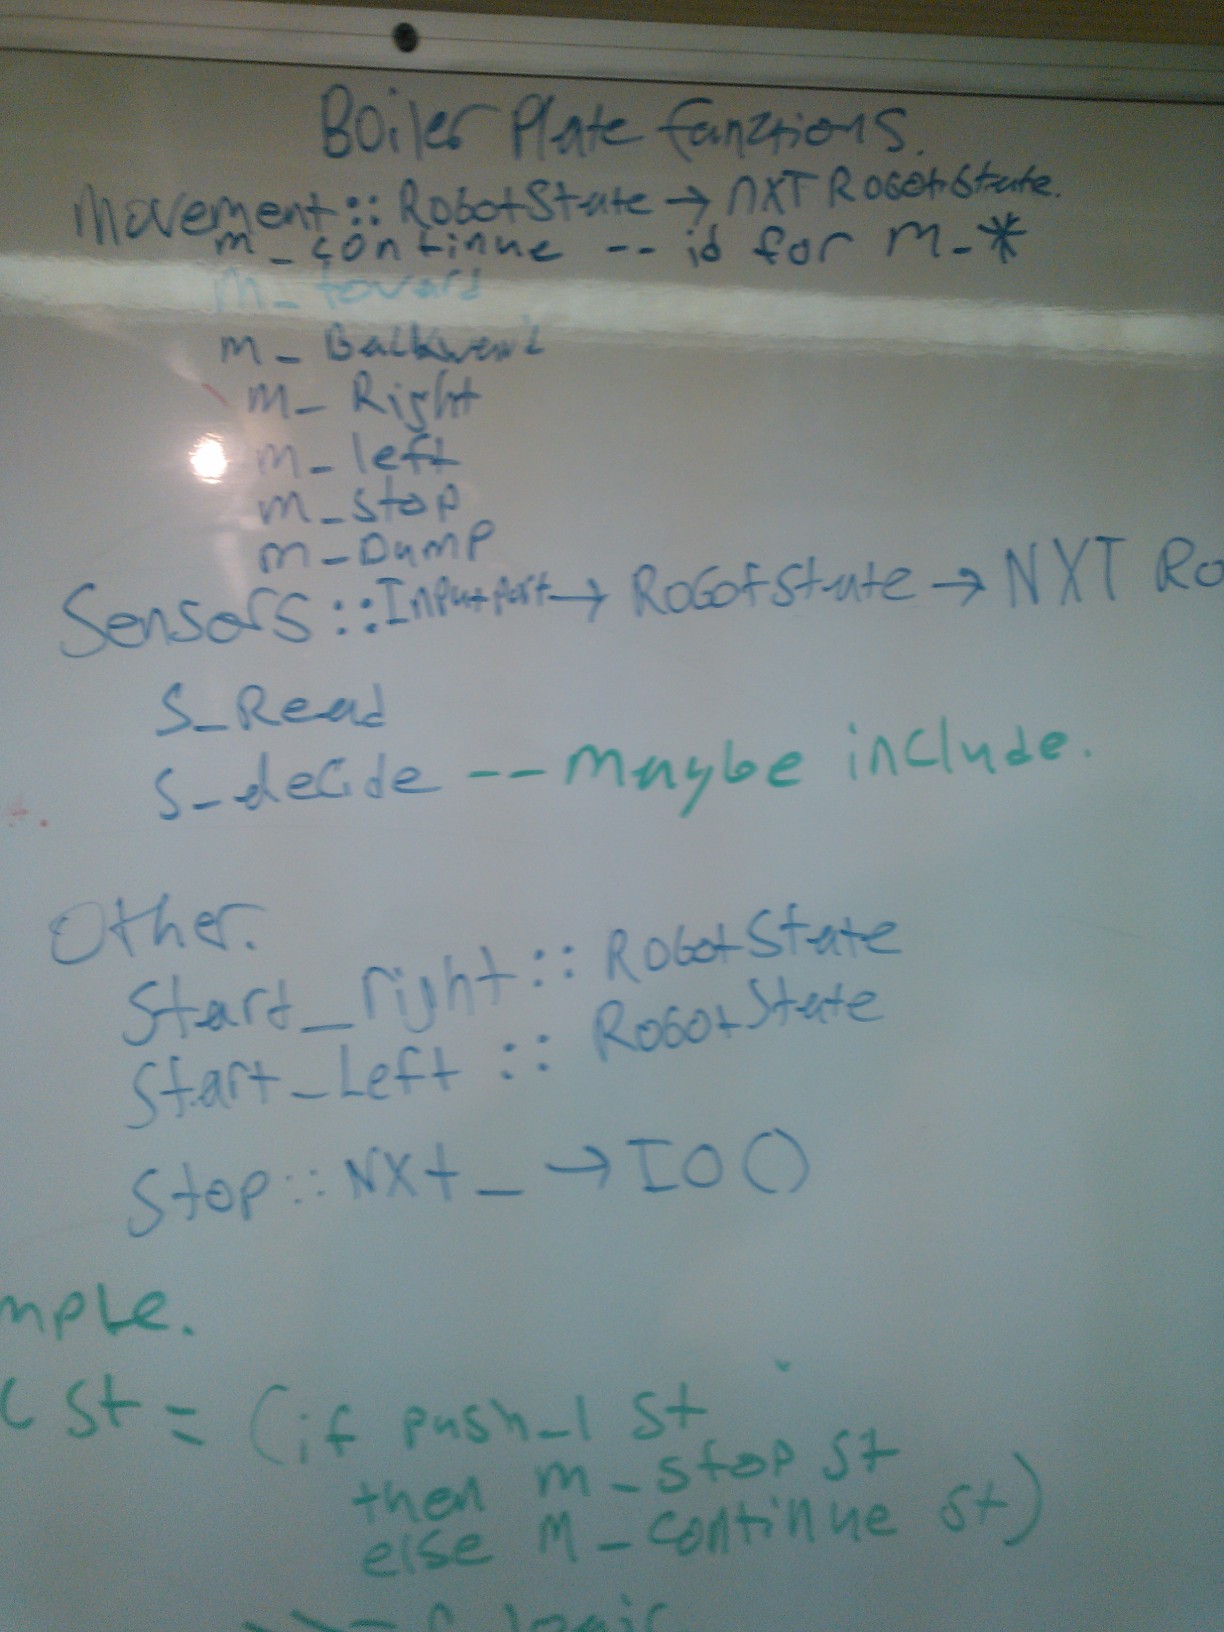 Boiler Plate Fanztions.
Movement :: RobotState → NXT RobotState.
m_continue -- id for m_*
m_foward
m_Backward
m_Right
m_left
m_stop
m_Dump
Sensors :: Inputport → RobotState → NXT Ro
S_Read
S_decide -- maybe include.
Other.
Start_right :: RobotState
Start_Left :: RobotState
Stop :: NXt _ → IO ()
mple.
c st = (if push_l st
then m_stop st
else m_continue st)
logic